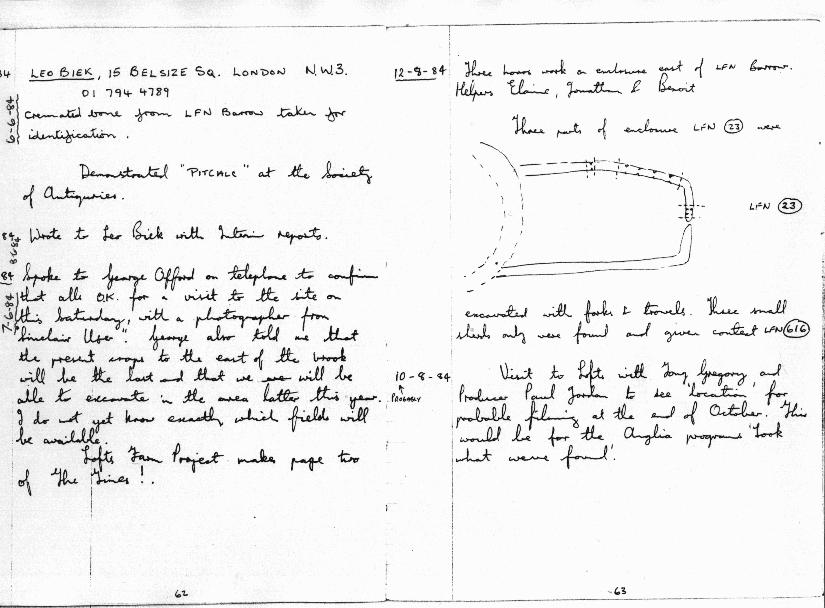 84
LEO BIEK, 15 BELSIZE SQ. LONDON N.W3.
01 794 4789
6-6-84
Cremated bone from LFN Barrow taken for
identification.
Demonstrated "PITCALC" at the Society
of Antiquries.
84
8-6-84
Wrote to Leo Biek with Interim reports.
84
7-6-84
Spoke to George Offord on telephone to confirm
that alls O.K. for a visit to the site on
this Saturday, with a photographer from
'Sinclair User'. George also told me that
the present crops to the east of the brook
will be the last and that we will be
able to excavate in the area latter this year.
I do not yet know exactly which fields will
be available.
Lofts Farm Project makes page two
of The Times!.
62
12-8-84
Three hours work on enclosure east of LFN Barrow.
Helpers Elaine, Jonathan & Benoit
Three parts of enclosure LFN 23 were
LFN 23
excavated with forks & trowels. Three small
sherds only were found and given context LFN 616
10-8-84
PROBABLY
Visit to Lofts with Tony Gregory and
Producer Paul Jordan to see 'location' for
probable filming at the end of October. This
would be for the Anglia programe 'Look
what weve found'.
63